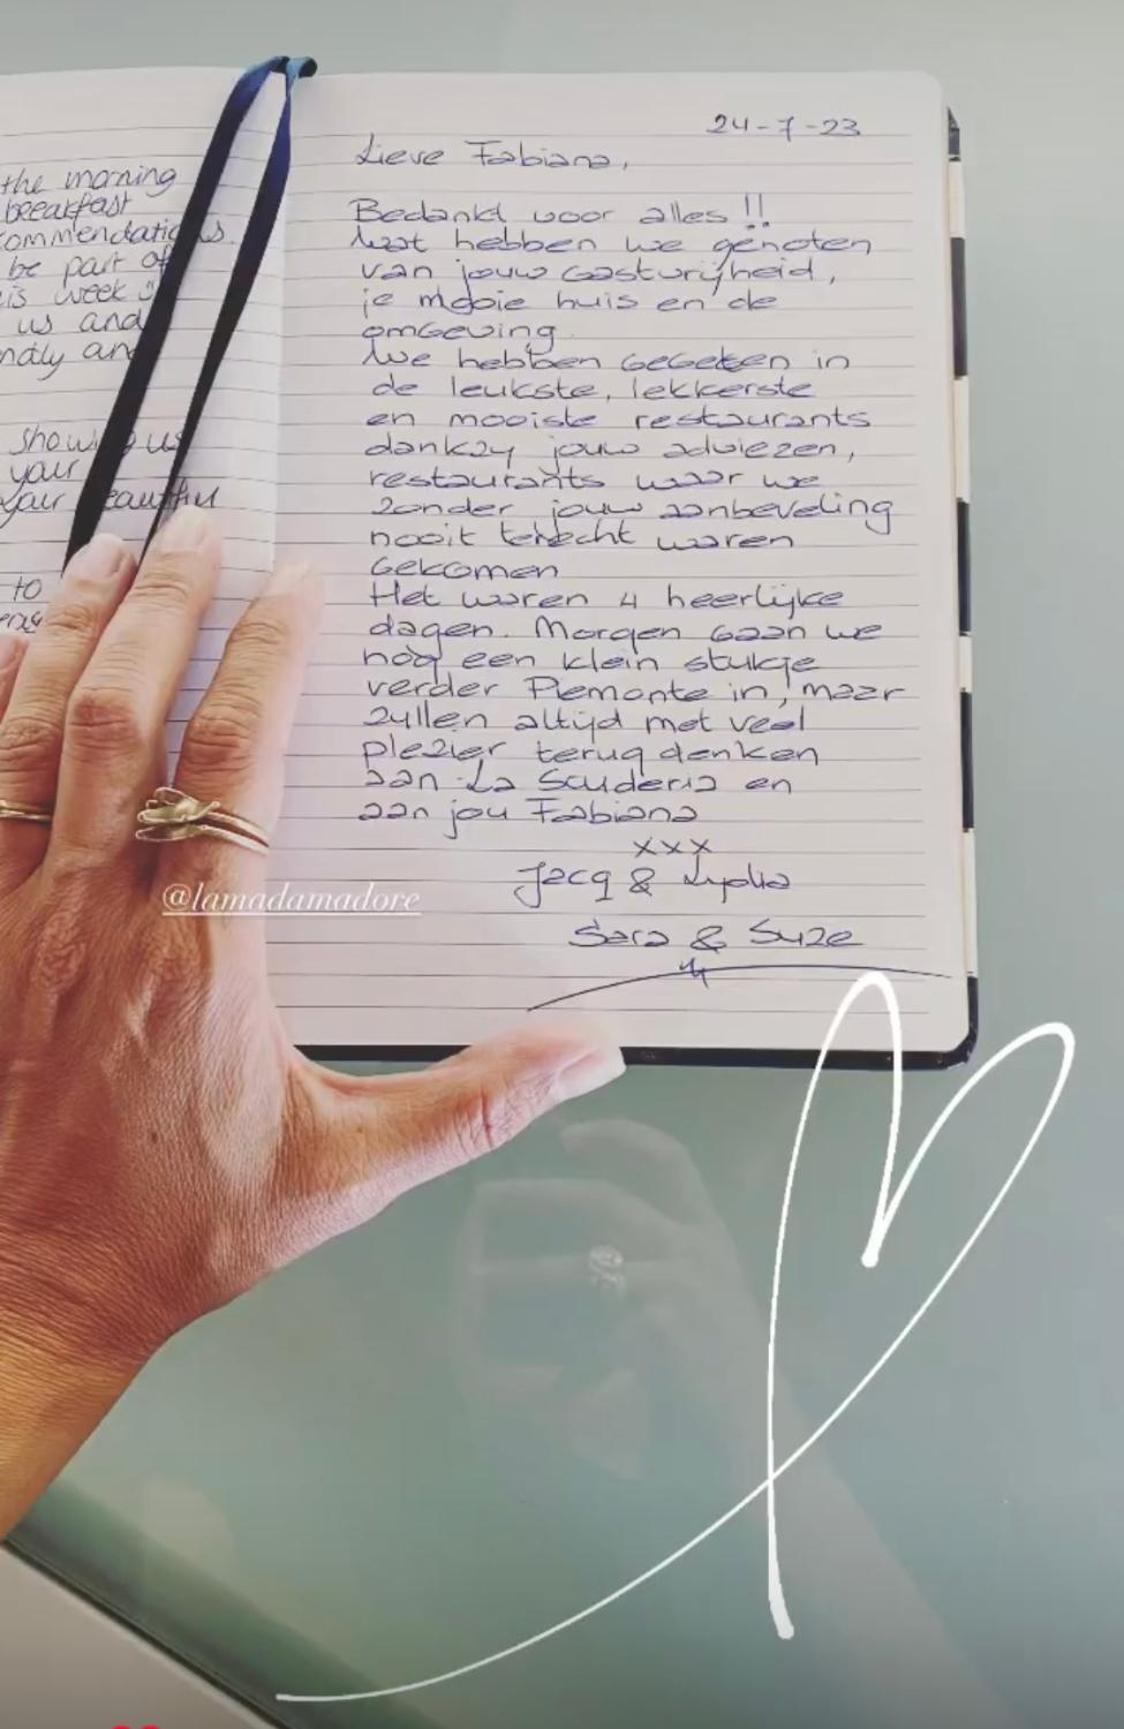 the morning
breakfast
commendations.
be part of
is week :)
us and
ndly and
showing us
your
your beautiful
to
24-7-23
Lieve Fabiana,
Bedankt voor alles !!
Wat hebben we genoten
van jouw gastvrijheid,
je mooie huis en de
omgeving.
We hebben gegeten in
de leukste, lekkerste
en mooiste restaurants
dankzy jouw adviezen,
restaurants waar we
zonder jouw aanbeveling
nooit terecht waren
gekomen
Het waren 4 heerlijke
dagen. Morgen gaan we
nog een klein stukje
verder Piemonte in, maar
zullen altijd met veel
plezier terug denken
aan La Scuderia en
aan jou Fabiana
xxx
Jacq & Lydia
Sara & Suze
@lamadamadore